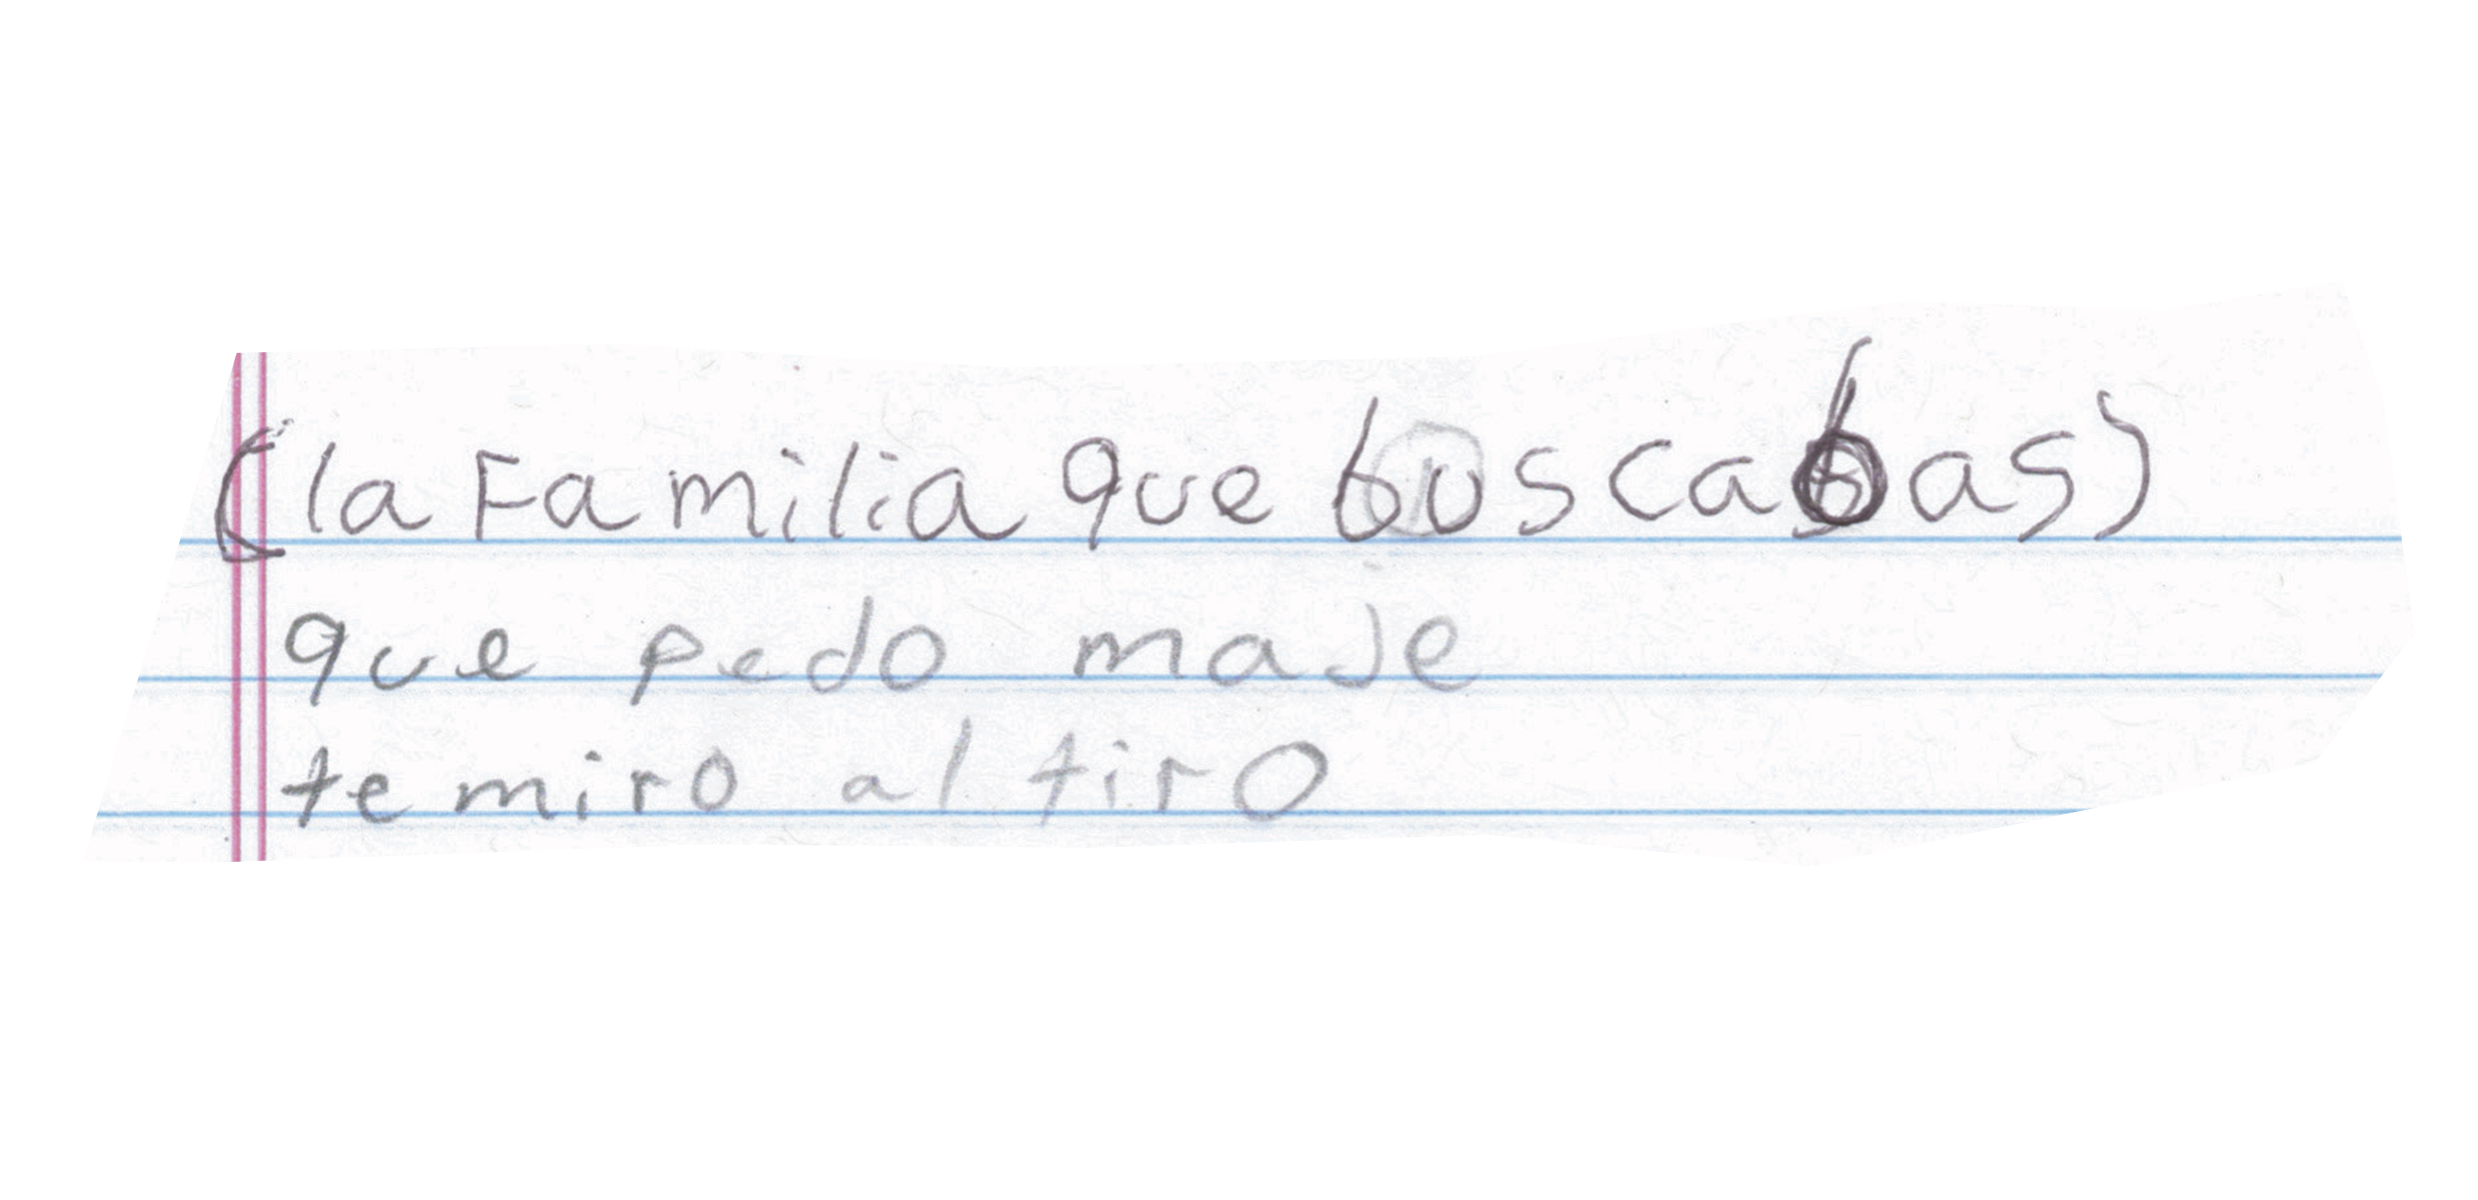 (la Familia que buscabas)
que pedo maje
te miro al tiro